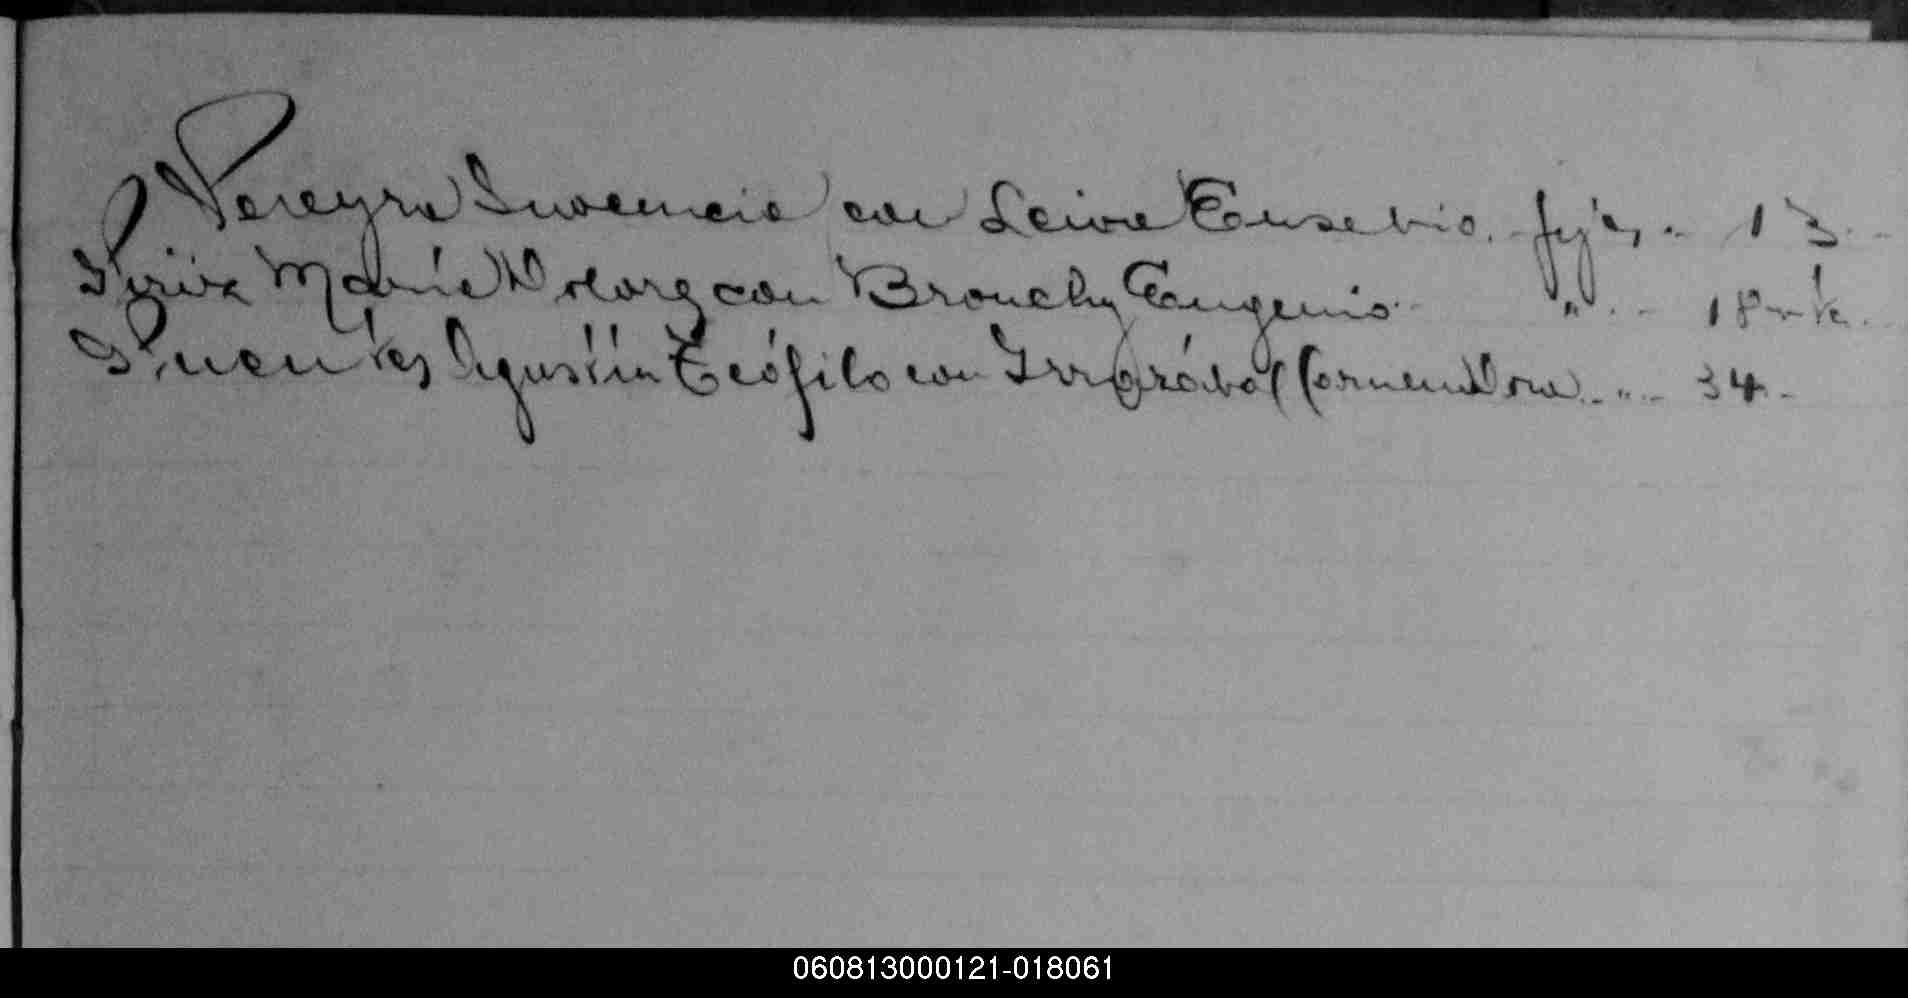 Pereyra Inocencia con Leiva Eusebio. fojas .. 13 ..
Píriz María Dolores con Brouchy Eugenio. " .. 18 vta.
Puentes Agustín Teófilo con Irrazábal Carmen Dora .. " .. 34 -
060813000121-018061